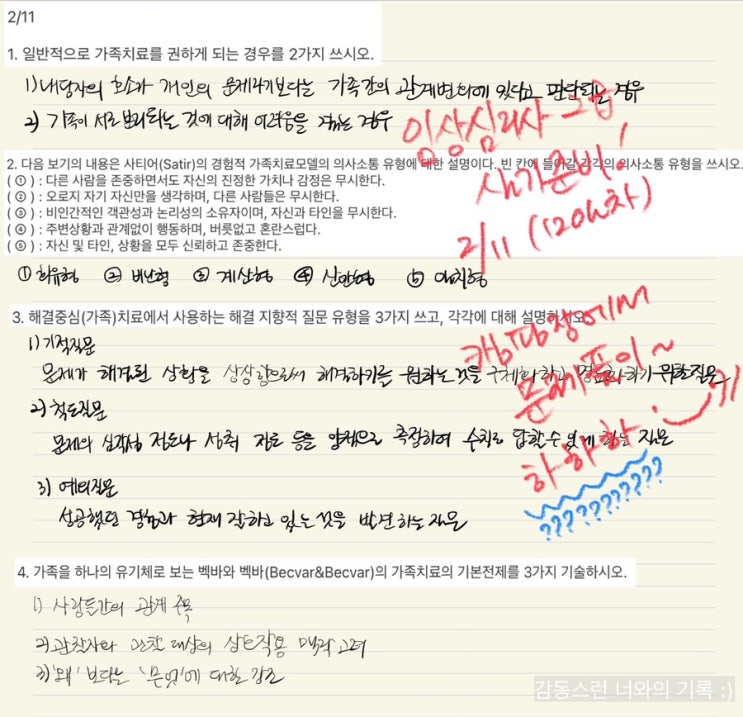 2/11
1. 일반적으로 가족치료를 권하게 되는 경우를 2가지 쓰시오.
1) 내담자의 호소가 개인의 문제라기보다는 가족간의 관계변화에 있다고 판단되는 경우
2) 가족이 서로 분리되는 것에 대해 어려움을 겪는 경우
임상심리사 2급
실기준비!
2/11 (120일차)
2. 다음 보기의 내용은 사티어(Satir)의 경험적 가족치료모델의 의사소통 유형에 대한 설명이다. 빈 칸에 들어갈 각각의 의사소통 유형을 쓰시오.
( ① ) : 다른 사람을 존중하면서도 자신의 진정한 가치나 감정은 무시한다.
( ② ) : 오로지 자기 자신만을 생각하며, 다른 사람들은 무시한다.
( ③ ) : 비인간적인 객관성과 논리성의 소유자이며, 자신과 타인을 무시한다.
( ④ ) : 주변상황과 관계없이 행동하며, 버릇없고 혼란스럽다.
( ⑤ ) : 자신 및 타인, 상황을 모두 신뢰하고 존중한다.
① 회유형 ② 비난형 ③ 계산형 ④ 산만형 ⑤ 일치형
3. 해결중심(가족)치료에서 사용하는 해결 지향적 질문 유형을 3가지 쓰고, 각각에 대해 설명하시오.
1) 기적질문
문제가 해결된 상황을 상상함으로써 해결하기를 원하는 것을 구체화하고 명료화하기 위한 질문
2) 척도질문
문제의 심각성 정도나 성취 정도 등을 양적으로 측정하여 수치로 답할 수 있게 하는 질문
3) 예외질문
성공했던 경험과 현재 잘하고 있는 것을 발견하는 질문
캠핑장에서
문제풀이~
하하하
??????????
4. 가족을 하나의 유기체로 보는 벡바와 벡바(Becvar&Becvar)의 가족치료의 기본전제를 3가지 기술하시오.
1) 사람들간의 관계 주목
2) 관찰자와 관찰 대상의 상호작용 맥락 고려
3) '왜' 보다는 '무엇'에 대한 강조
감동스런 너와의 기록 :)